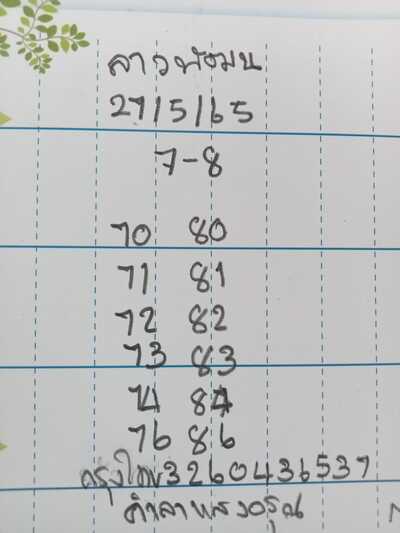 ลาวพัฒนา
27/5/65
7-8
70 80
71 81
72 82
73 83
74 84
76 86
กรุงไทย3260436537